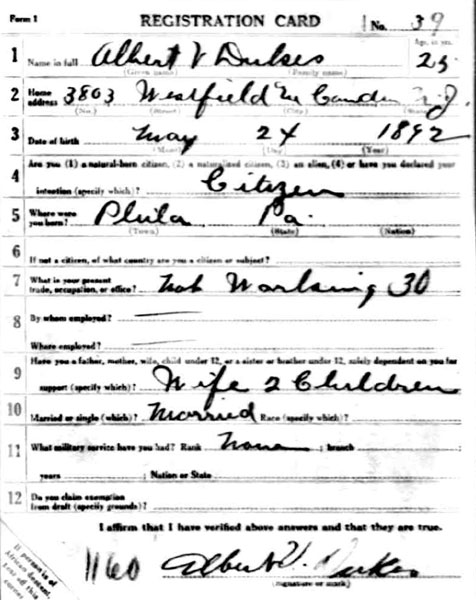 Form 1 REGISTRATION CARD No. 39
1 Name in full Albert V Dukes Age, in yrs. 25
(Given name) (Family name)
2 Home address 3803 Westfield Camden N.J.
(No.) (Street) (City) (State)
3 Date of birth May 24 1892
(Month) (Day) (Year)
4 Are you (1) a natural-born citizen, (2) a naturalized citizen, (3) an alien, (4) or have you declared your
intention (specify which)? Citizen
5 Where were you born? Phila Pa.
(Town) (State) (Nation)
6 If not a citizen, of what country are you a citizen or subject?
7 What is your present trade, occupation, or office? Not Working 30
8 By whom employed?
Where employed?
9 Have you a father, mother, wife, child under 12, or a sister or brother under 12, solely dependent on you for
support (specify which)? Wife 2 Children
10 Married or single (which)? Married Race (specify which)?
11 What military service have you had? Rank None ; branch
years ; Nation or State
12 Do you claim exemption from draft (specify grounds)?
I affirm that I have verified above answers and that they are true.
1160 Albert V. Dukes
(Signature or mark)
If person is of
African descent,
tear off this
corner